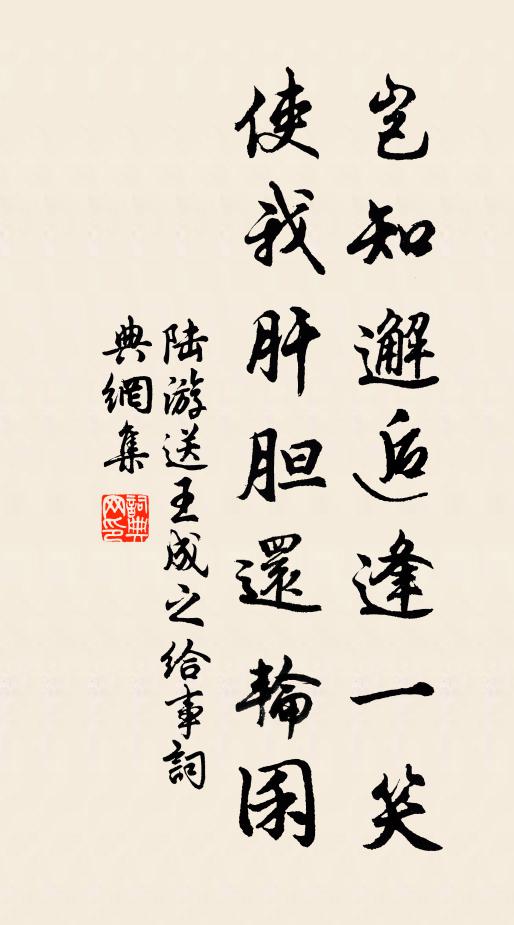 岂知邂逅逢一笑
使我肝胆還輪囷
陆游送王成之给事詞
典網集
詞典網印